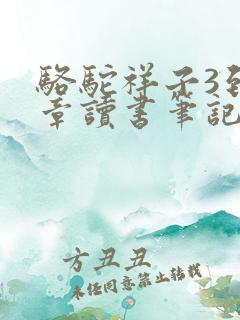 駱駝祥子3到
章讀書筆記
方丑丑
未經同意禁止轉載